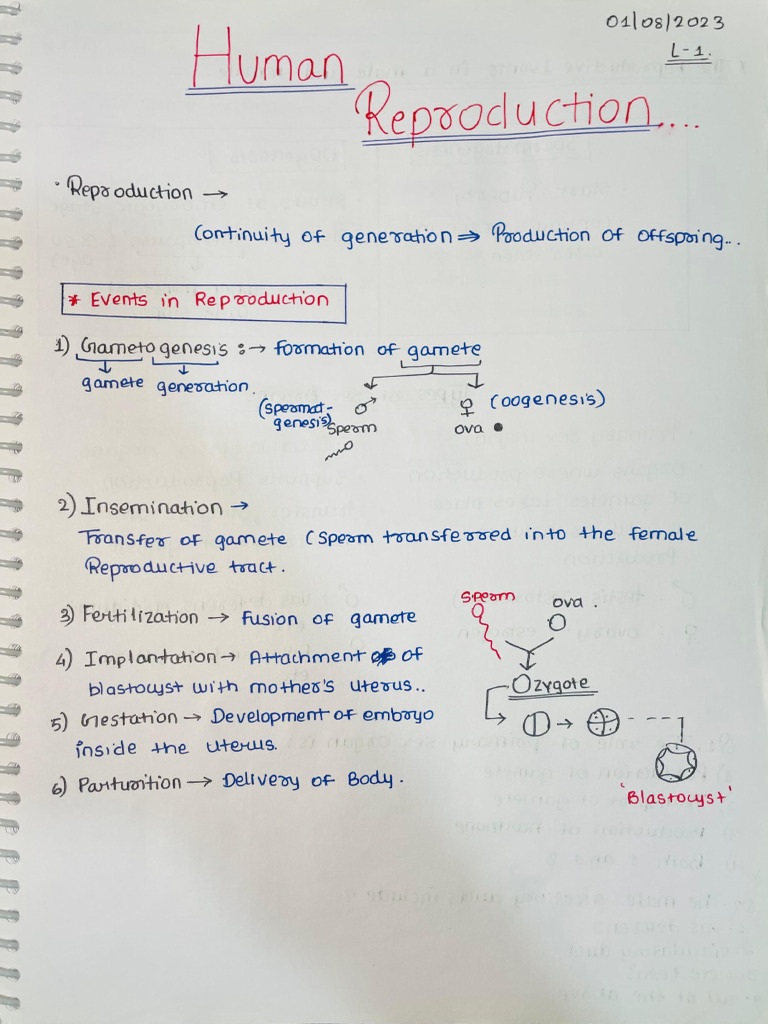 01/08/2023
L-1.
Human
Reproduction....
· Reproduction →
Continuity of generation ⇒ Production of offspring..
* Events in Reproduction
1) Gametogenesis :→ formation of gamete
gamete generation.
(spermat-
genesis)
♂ ♀ (oogenesis)
sperm ova
2) Insemination →
Transfer of gamete (sperm transferred into the female
Reproductive tract.
3) Fertilization → Fusion of gamete
sperm ova .
4) Implantation → Attachment of
blastocyst with mother's uterus..
Ozygote
5) Gestation → Development of embryo
inside the uterus.
6) Parturition → Delivery of Body .
'Blastocyst'